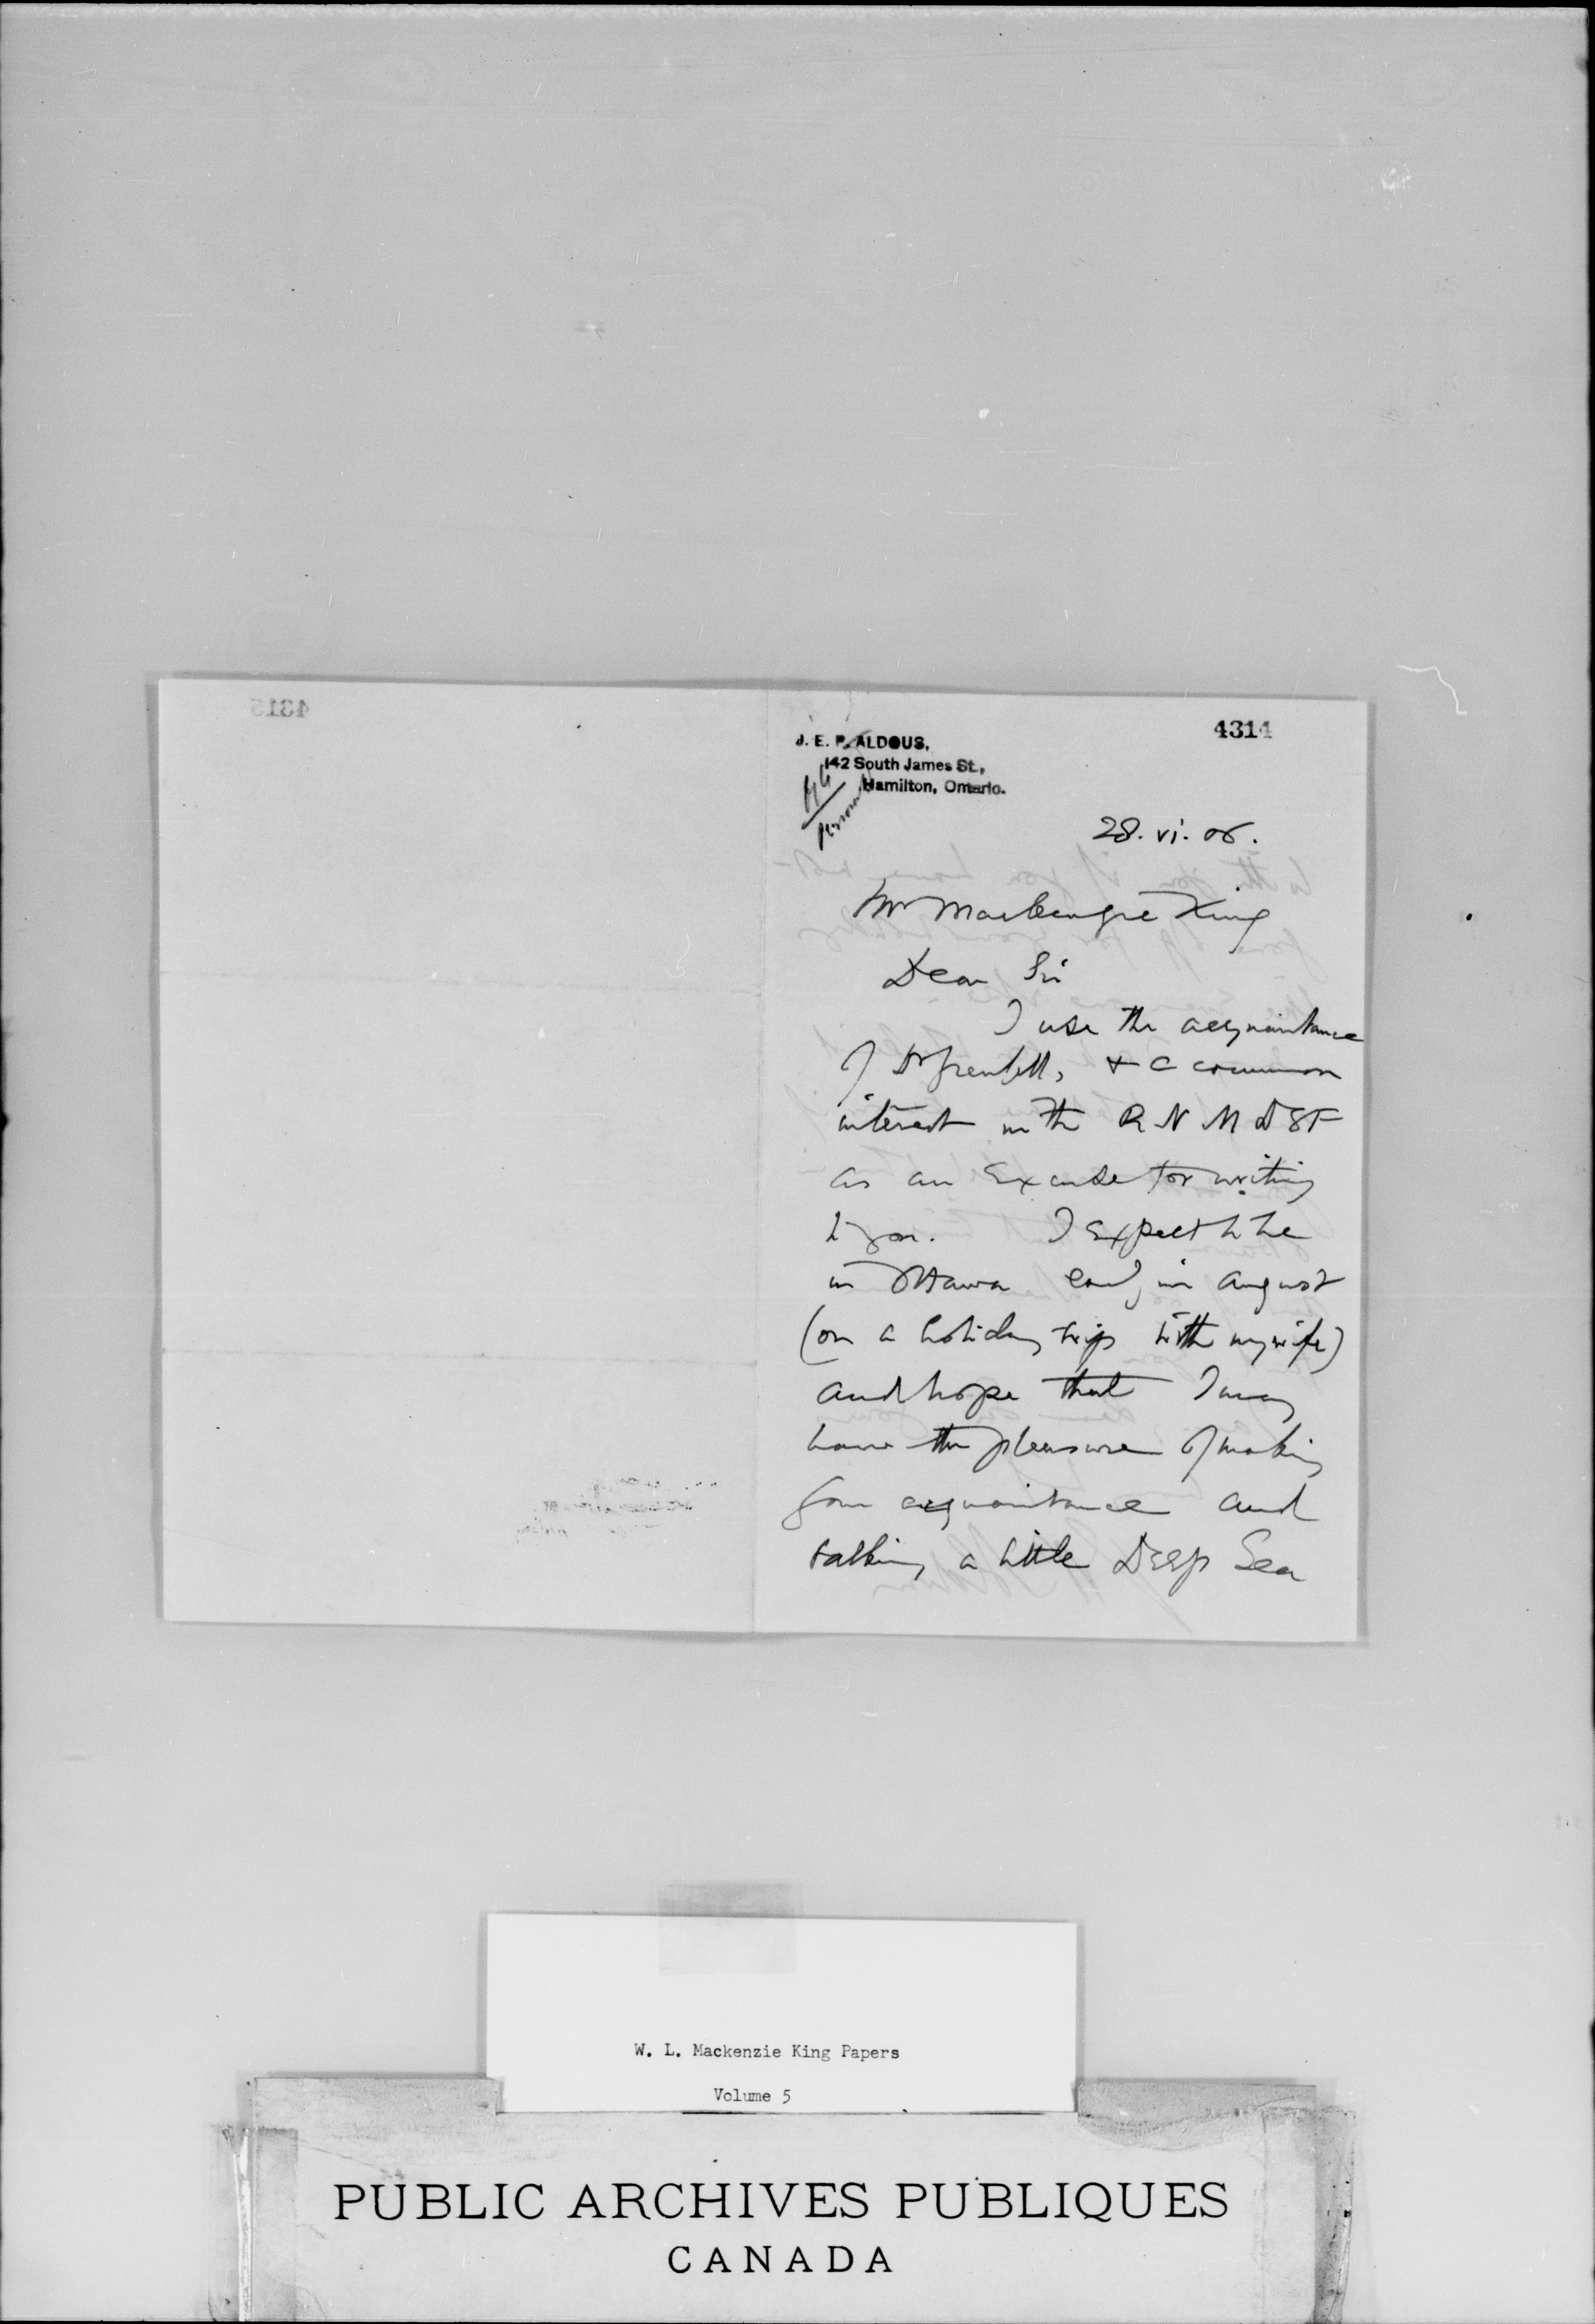 4314
J. E. P. ALDOUS,
142 South James St.,
Hamilton, Ontario.
28. vi. 06.
Mr Mackenzie King
Dear Sir
I use the acquaintance
of Dr Grenfell, & a common
interest in the R N M D S F
as an excuse for writing
to you. I expect to be
in Ottawa early in August
(on a holiday trip with my wife)
and hope that I may
have the pleasure of making
your acquaintance and
talking a little Deep Sea
4315
W. L. Mackenzie King Papers
Volume 5
PUBLIC ARCHIVES PUBLIQUES
CANADA